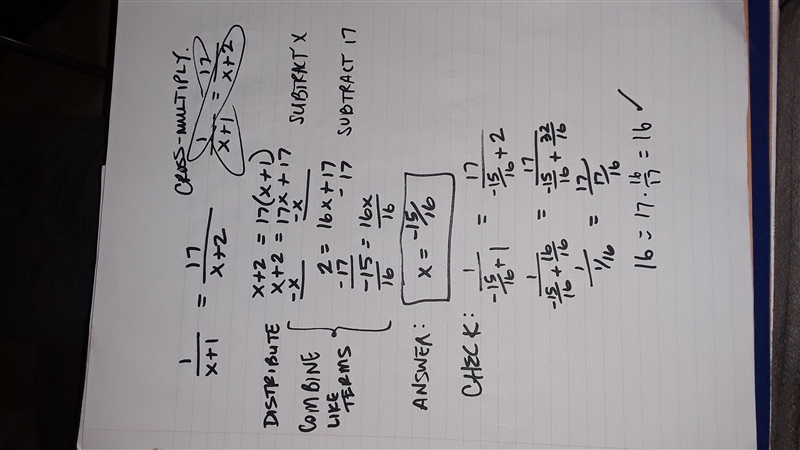 1/(x+1) = 17/(x+2)
CROSS-MULTIPLY.
1/(x+1) = 17/(x+2)
x+2 = 17(x+1)
DISTRIBUTE x+2 = 17x+17
-x -x SUBTRACT X
COMBINE LIKE TERMS
2 = 16x+17
-17 -17 SUBTRACT 17
-15/16 = 16x/16
ANSWER: x = -15/16
CHECK: 1/(-15/16 + 1) = 17/(-15/16 + 2)
1/(-15/16 + 16/16) = 17/(-15/16 + 32/16)
1/(1/16) = 17/(17/16)
16 = 17 · 16/17 = 16 ✓